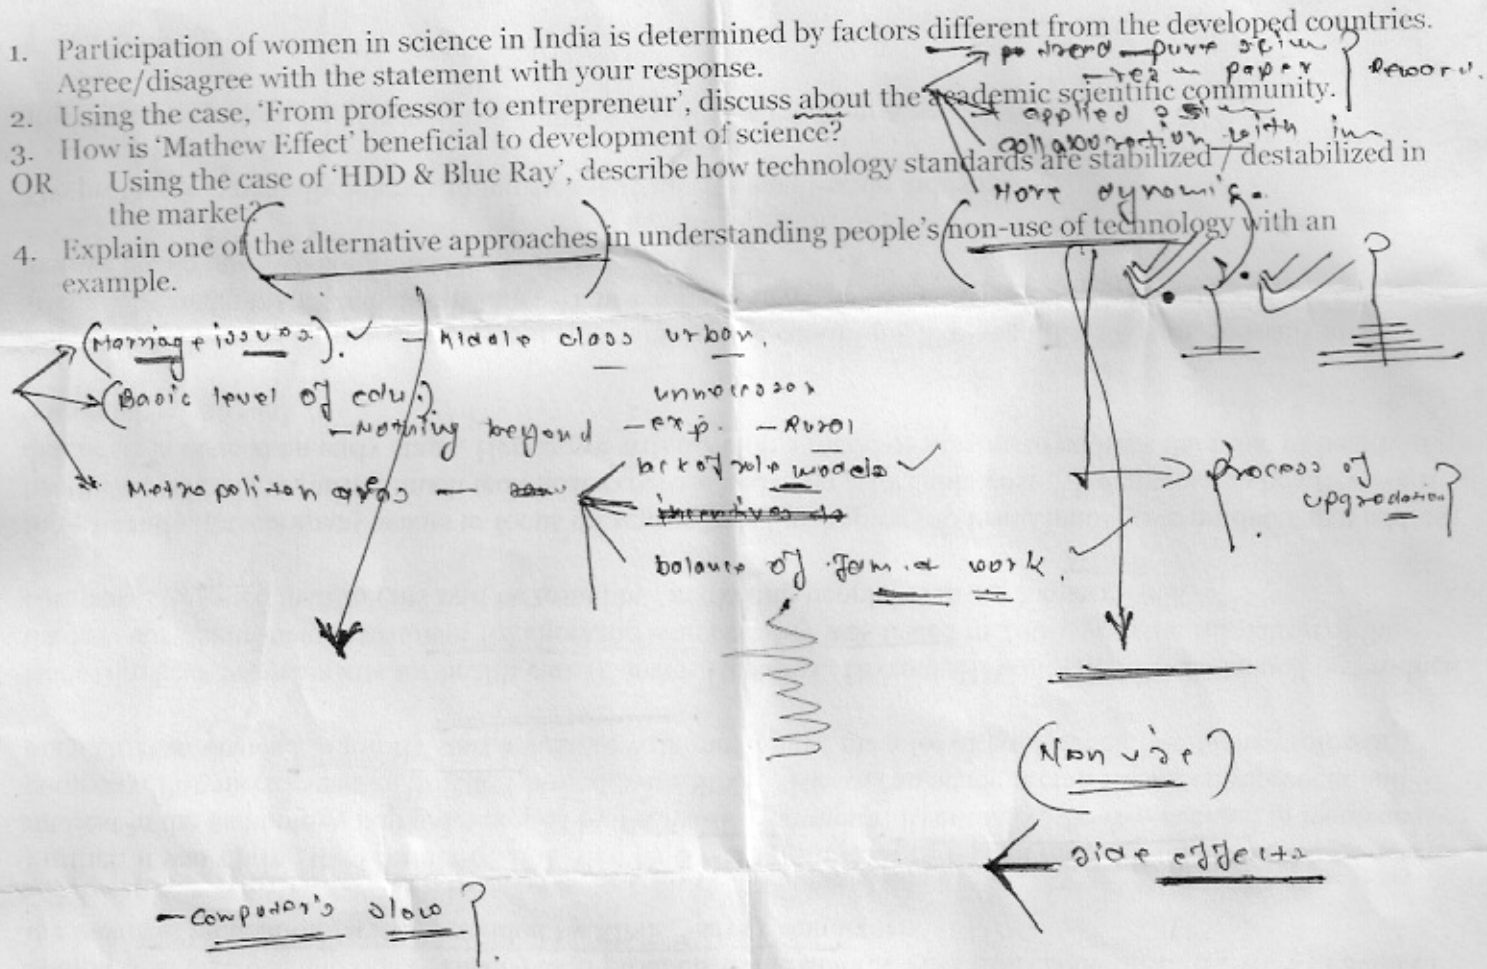 1. Participation of women in science in India is determined by factors different from the developed countries.
Agree/disagree with the statement with your response.
2. Using the case, 'From professor to entrepreneur', discuss about the academic scientific community.
3. How is 'Mathew Effect' beneficial to development of science?
OR Using the case of 'HDD & Blue Ray', describe how technology standards are stabilized / destabilized in
the market?
4. Explain one of the alternative approaches in understanding people's non-use of technology with an
example.
paper
applied
collaboration with in
More dynamic.
(Marriage issues). - Middle class urban.
(Basic level of edu.)
- Nothing beyond - exp. - Rural
Metropolitan areas
role models
balance of fam. & work.
process of
upgradation
(Non use)
side effects
- Computer's slow